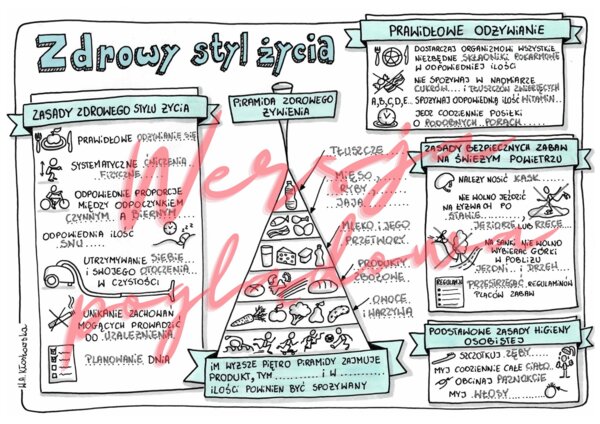 Zdrowy styl życia
ZASADY ZDROWEGO STYLU ŻYCIA
PRAWIDŁOWE ODŻYWIANIE SIĘ
SYSTEMATYCZNE ĆWICZENIA
FIZYCZNE
ODPOWIEDNIE PROPORCJE
MIĘDZY ODPOCZYNKIEM
CZYNNYM A BIERNYM
ODPOWIEDNIA ILOŚĆ
SNU
UTRZYMYWANIE SIEBIE
I SWOJEGO OTOCZENIA
W CZYSTOŚCI
UNIKANIE ZACHOWAŃ
MOGĄCYCH PROWADZIĆ
DO UZALEŻNIENIA
PLANOWANIE DNIA
PIRAMIDA ZDROWEGO
ŻYWIENIA
TŁUSZCZE
MIĘSO,
RYBY,
JAJA
MLEKO I JEGO
PRZETWORY
PRODUKTY
ZBOŻOWE
OWOCE
I WARZYWA
IM WYŻSZE PIĘTRO PIRAMIDY ZAJMUJE
PRODUKT, TYM .......... I W ..........
ILOŚCI POWINIEN BYĆ SPOŻYWANY
PRAWIDŁOWE ODŻYWIANIE
DOSTARCZAJ ORGANIZMOWI WSZYSTKIE
NIEZBĘDNE SKŁADNIKI POKARMOWE
W ODPOWIEDNIEJ ILOŚCI
NIE SPOŻYWAJ W NADMIARZE
CUKRÓW I TŁUSZCZÓW ZWIERZĘCYCH
A,B,C,D,E... SPOŻYWAJ ODPOWIEDNIĄ ILOŚĆ WITAMIN
JEDZ CODZIENNIE POSIŁKI
O PODOBNYCH PORACH
ZASADY BEZPIECZNYCH ZABAW
NA ŚWIEŻYM POWIETRZU
NALEŻY NOSIĆ KASK
NIE WOLNO JEŹDZIĆ
NA ŁYŻWACH PO
STAWIE
JEZIORZE LUB RZECE
NA SANKI NIE WOLNO
WYBIERAĆ GÓRKI
W POBLIŻU
JEZDNI I DRZEW
REGULAMIN
PRZESTRZEGAĆ REGULAMINÓW
PLACÓW ZABAW
PODSTAWOWE ZASADY HIGIENY
OSOBISTEJ
SZCZOTKUJ ZĘBY
MYJ CODZIENNIE CAŁE CIAŁO
OBCINAJ PAZNOKCIE
MYJ WŁOSY
Wersja
poglądowa